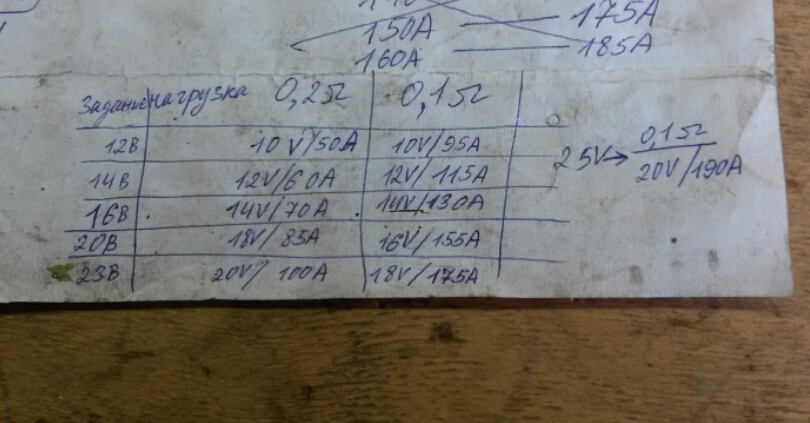 150A — 175A
160A — 185A
Задание нагрузка 0,2Ω 0,1Ω
12В 10V/50A 10V/95A
14В 12V/60A 12V/115A
16В 14V/70A 14V/130A
20В 18V/85A 16V/155A
23В 20V/100A 18V/175A
25V→ 0,1Ω
20V/190A